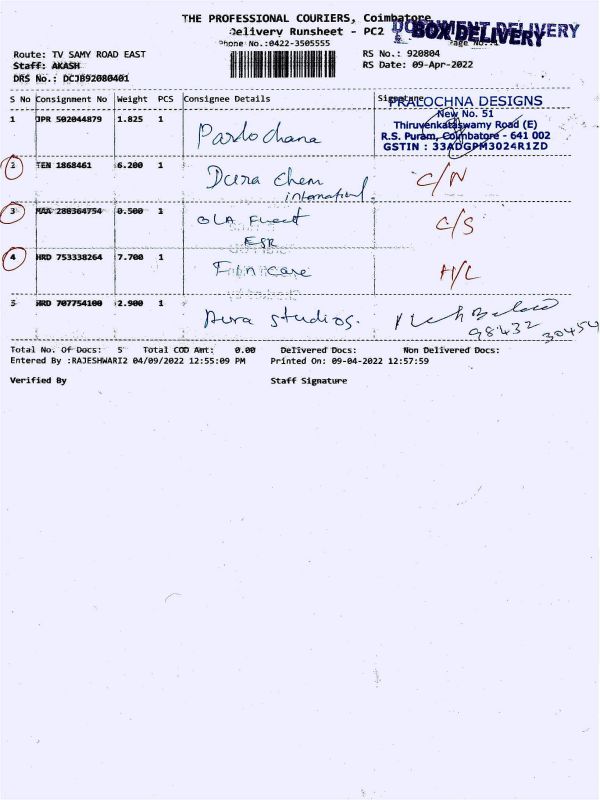 THE PROFESSIONAL COURIERS, Coimbatore
Delivery Runsheet - PC2
Phone No.:0422-3505555
DOCUMENT DELIVERY
BOX DELIVERY
Page No.:1
Route: TV SAMY ROAD EAST
RS No.: 920804
Staff: AKASH
RS Date: 09-Apr-2022
DRS No.: DCJB92080401
S No Consignment No Weight PCS Consignee Details Signature
PRALOCHNA DESIGNS
New No. 51
Thiruvenkataswamy Road (E)
R.S. Puram, Coimbatore - 641 002
GSTIN : 33ADGPM3024R1ZD
1 JPR 502044879 1.825 1
2 TEN 1868461 6.200 1 Dura Chem
international. C/N
3 MAA 280364754 0.500 1 OLA Fleet
ESR C/S
4 HRD 753338264 7.700 1 Fin care H/L
5 HRD 707754100 2.900 1 Aura studios.
98432 30454
Total No. Of Docs: 5 Total COD Amt: 0.00 Delivered Docs: Non Delivered Docs:
Entered By :RAJESHWARI2 04/09/2022 12:55:09 PM Printed On: 09-04-2022 12:57:59
Verified By Staff Signature